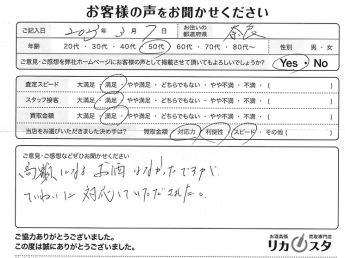 お客様の声をお聞かせください
ご記入日 2025年 3月 7日 お住いの都道府県 奈良
年齢 20代・30代・40代・50代・60代・70代・80代〜 性別 男・女
ご意見・ご感想を弊社ホームページにお客様の声として掲載させて頂いてもよろしいでしょうか? Yes・No
査定スピード 大満足・満足・やや満足・どちらでもない・やや不満・不満・( )
スタッフ接客 大満足・満足・やや満足・どちらでもない・やや不満・不満・( )
買取金額 大満足・満足・やや満足・どちらでもない・やや不満・不満・( )
当店をお選びいただきました決め手は? 買取金額・対応力・利便性・スピード・その他( )
ご意見・ご感想などぜひお聞かせください
お酒
ていねいに対応していただきました。
ご協力ありがとうございました。
この度は誠にありがとうございました。
お酒高価買取専門店
リカスタ